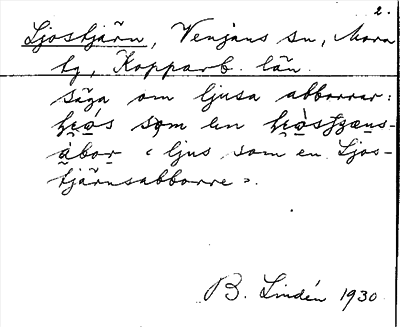 2.
Ljostjärn, Venjans sn, Mora
tg, Kopparb. län.
säga om ljusa abborrar:
som en
‹ ljus som en Ljos-
tjärnsabborre ›.
B. Lindén 1930